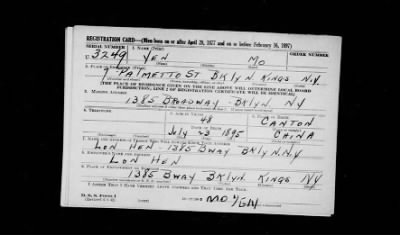 REGISTRATION CARD—(Men born on or after April 28, 1877 and on or before February 16, 1897)
SERIAL NUMBER 1. NAME (Print) ORDER NUMBER
U 3249 YEN MO
2. PLACE OF RESIDENCE (Print)
7 PALMETTO ST BKLYN. KINGS N.Y.
[THE PLACE OF RESIDENCE GIVEN ON THE LINE ABOVE WILL DETERMINE LOCAL BOARD
JURISDICTION; LINE 2 OF REGISTRATION CERTIFICATE WILL BE IDENTICAL]
3. MAILING ADDRESS
1385 BROADWAY - BKLYN. NY
4. TELEPHONE 5. AGE IN YEARS 6. PLACE OF BIRTH
48 CANTON
DATE OF BIRTH
July 23 1895 CHINA
7. NAME AND ADDRESS OF PERSON WHO WILL ALWAYS KNOW YOUR ADDRESS
LON HEN - 1385 BWAY BKLYN. N.Y
8. EMPLOYER'S NAME AND ADDRESS
LON HEN
9. PLACE OF EMPLOYMENT OR BUSINESS
1385 BWAY BKLYN. KINGS NY
I AFFIRM THAT I HAVE VERIFIED ABOVE ANSWERS AND THAT THEY ARE TRUE.
D. S. S. Form 1
MO YEN